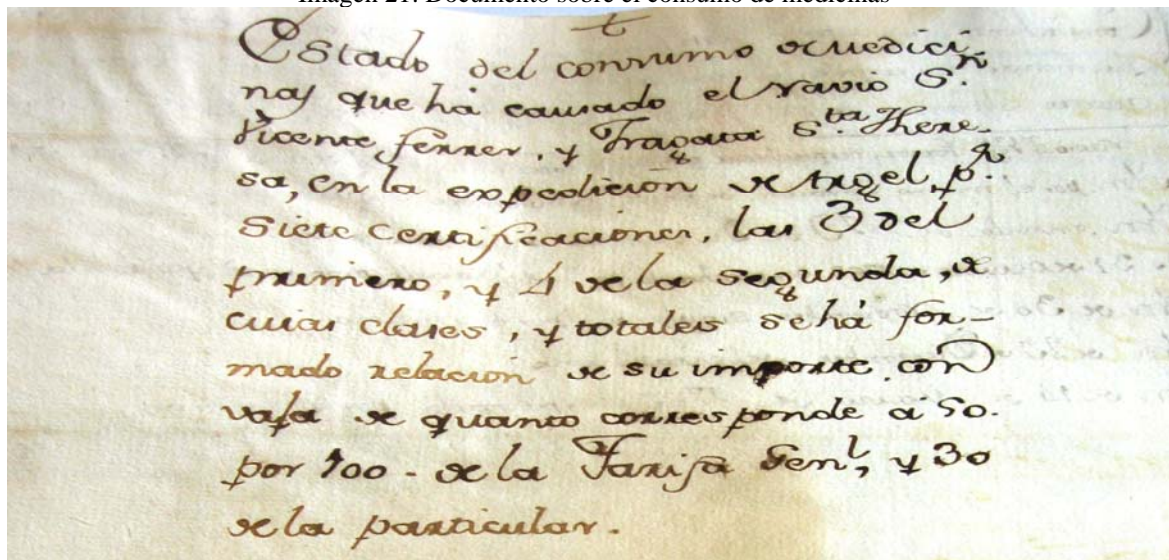 Imagen 21. Documento sobre el consumo de medicinas
Estado del consumo de medici-
nas que há causado el Navio Sn.
Vicente Ferrer, y Fragata Sta. There-
sa, en la expedicion de Argel, pr.
Siete Certificaciones, las 3 del
primero, y 4 de la segunda, de
cuias clases, y totales se há for-
mado relacion de su importe con
vaja de quanto corresponde a 50.
por 100 - de la Tarifa Genl, y 30
de la particular.